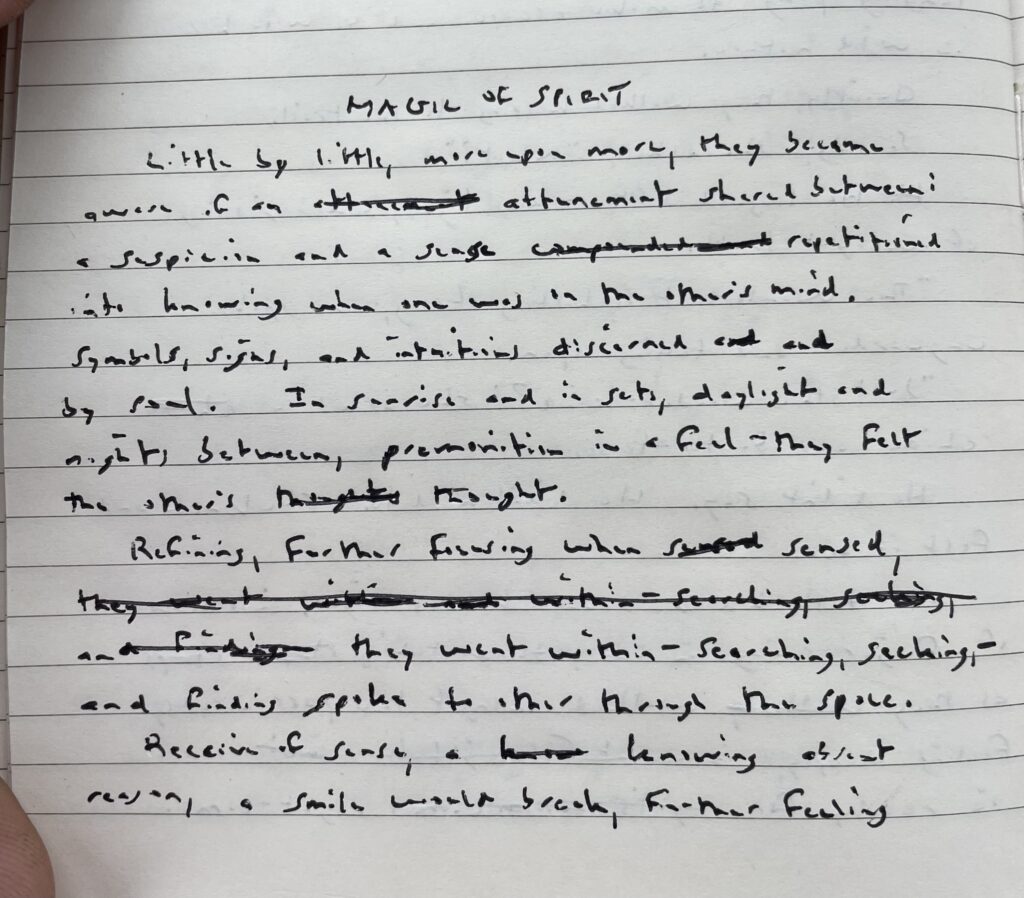 MAGIC OF SPIRIT
Little by little, more upon more, they became
aware of an attunement shared between:
a suspicion and a sense repetitioned
into knowing when one was in the other's mind.
Symbols, signs, and intuitions discerned and
by soul. In sunrise and in sets, daylight and
nights between, premonition in a feel - they felt
the other's thought.
Refining, further focusing when sensed,
they went within - searching, seeking,
and they went within - searching, seeking, -
and finding spoke to other through the space.
Receive of sense, a knowing absent
reason, a smile would break, further feeling